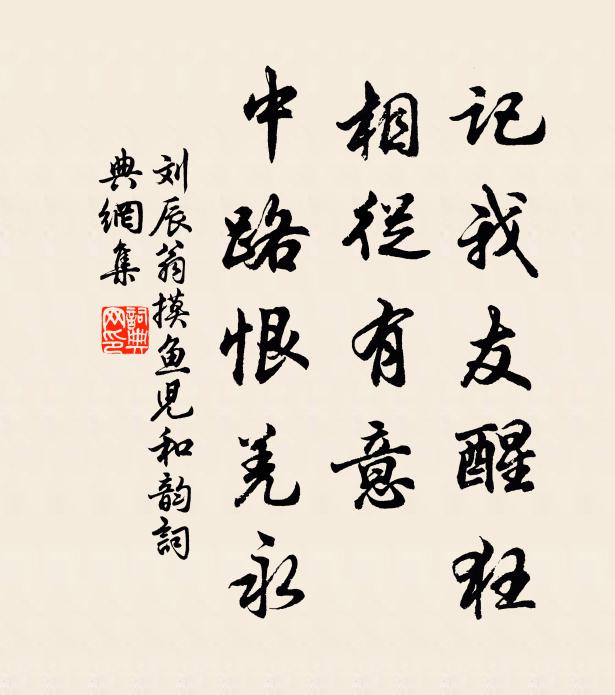 记我友醒狂
相從有意
中路恨羌永
刘辰翁摸鱼児和韵詞
典網集
詞典网印